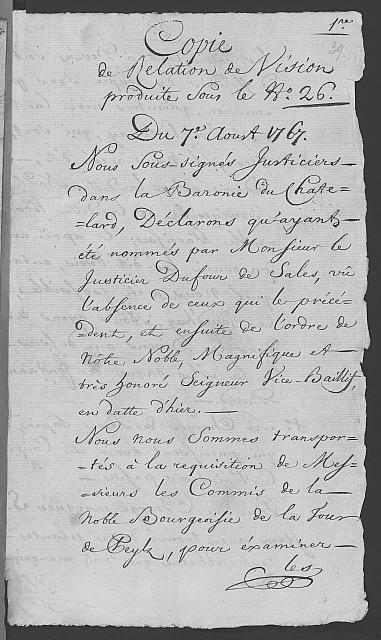 1.re
39
Copie
de Relation de Vision
produite sous le No. 26.
Du 7.e Aoust 1767.
Nous Sous-signés Justiciers
dans la Baronie du Chate-
=lard, Déclarons qu'ayant
été nommés par Monsieur le
Justicier Dufour de Sales, vû
l'absence de ceux qui le précé-
=dent, et ensuite de l'ordre de
nôtre Noble, Magnifique et
très honoré Seigneur Vice-Baillif,
en datte d'hier. —
Nous nous Sommes transpor-
-tés à la requisition de Mes-
=sieurs les Commis de la
Noble Bourgeoisie de la Tour
de Peylz, pour examiner —
les